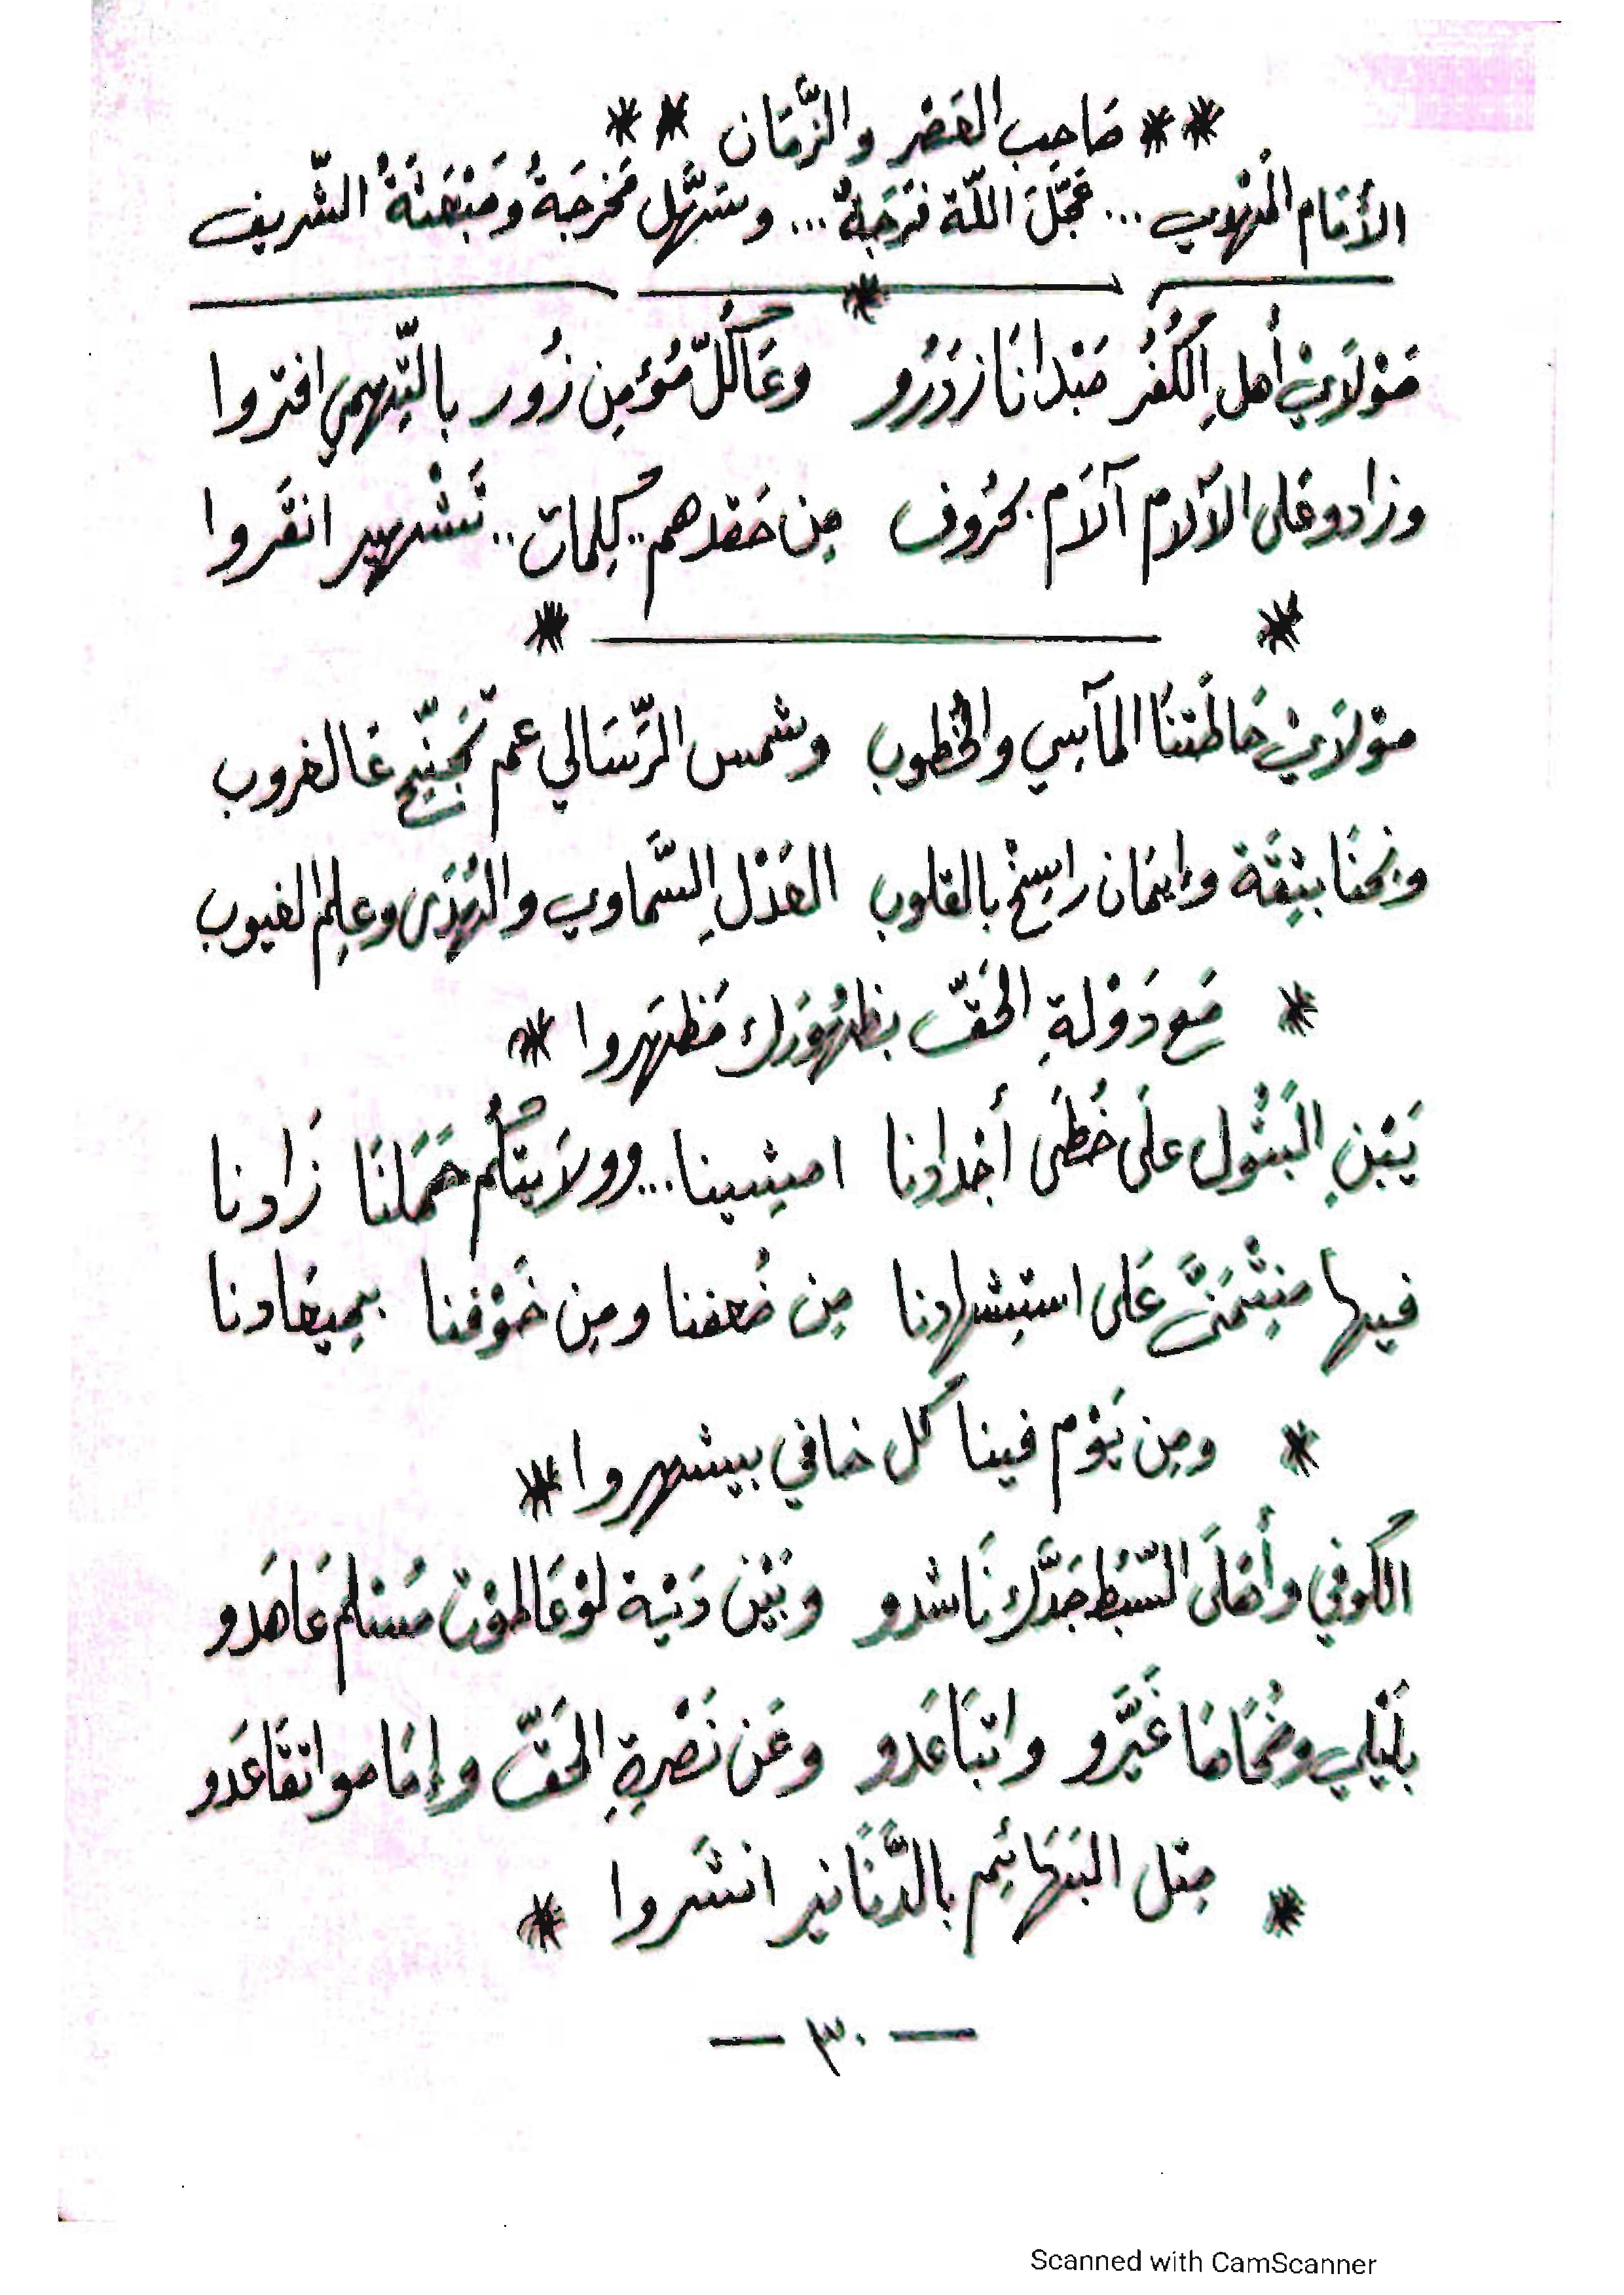 ** صَاحِب العَصْر والزَّمَان **
الأمَام المَهْدِي ... عَجَّلَ اللّة فَرَجَةُ ... وسَهَّل مَخرجَةُ ومَبْعَثَةُ الشَّريف
*
مَوْلَايْ أهلِ الكُفُر مَبْدانَا زدَرُو وعَاكُلّ مُؤمِن زُور بالتِّهمِي افتروا
وزادو عَلى الآلام آلآم بحُرُوف مِن حَقدهم .. كِلمات .. تَشْهير انقَروا
* *
مَوْلَايْ حَاطَتنَا المآسِي والخُطُوب وشمس الرَّسَالي عم تجَنِّح عَالغروب
ونحنَا بثِقَة وإيمَان راسِخْ بالقلوب العَدْلِ السَّماوي والهُدَى وعلِم الغيوب
* مَع دَوْلةِ الحَقّ بظهُورَك مَظهَروا *
يَبْنِ البَتُول علَى خُطَى أجْدادنا امشِينا ... وولَايتكُم حَمَلنَا زَادنا
فيها مِنِتْمَنَّى عَلى استِشهادنا مِن ضُعفنا ومِن خَوْفنا بمِيعَادنا
* ومِن يَوْم فينا كل خافي بيشهروا *
الكُوفي وأهَلَا السِّبُط جَدَّك نَاشدو وبَيْن دَنْية لوْ عَالمَوْت مُسْلم عَاهَدو
بلَيْلي وضُحَاهَا غَيَّرو واتبَاعَدو وعَن نَصْرةِ الحَقّ وإمَامو اتقَاعَدو
* مِتل البَهَائِم بالدَّنَانير انشَروا *
— ٣٠ —
Scanned with CamScanner